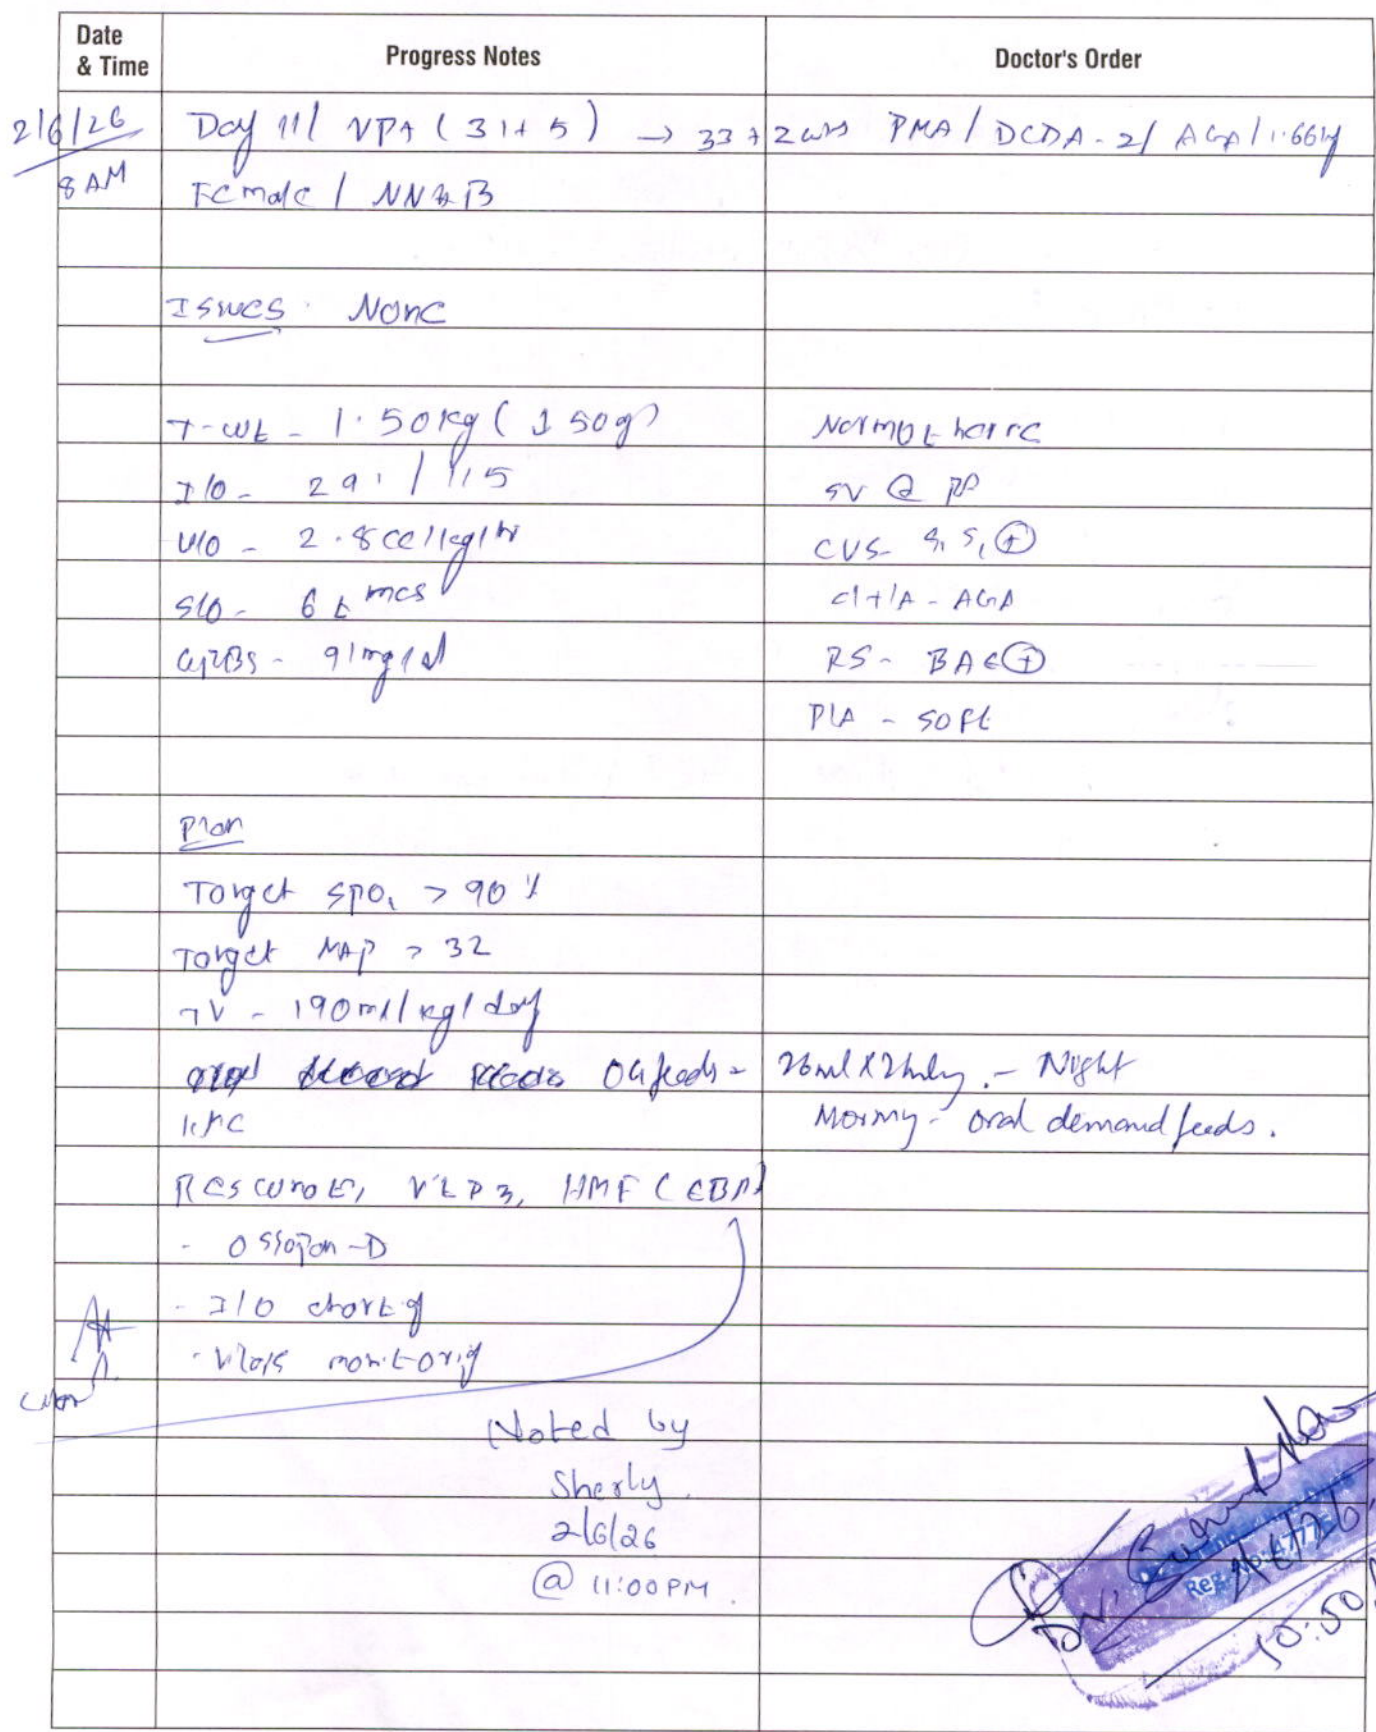 Date & Time Progress Notes Doctor's Order
2/6/26 Day 11/ VPT (31+5) → 33+2wks PMA / DCDA-2/ AGA/1.66kg
8 AM Female / NNJB
Issues: None
T-wt - 1.50kg (↓50g) Normothermic
I/O - 291/115 SV @ RA
U/O - 2.8cc/kg/hr CVS- S1 S2 (+)
S/O - 6 times c/t/A - AGA
GRBS - 91mg/dl RS- BAE (+)
P/A - soft
Plan
Target SPO2 > 90%
Target MAP > 32
TV - 190ml/kg/day
OG feeds - 26ml x 2hrly. - Night
KMC Morning - oral demand feeds.
HMF (EBM)
- Ossopan-D
- I/O charting
- Vitals monitoring
Noted by
Sherly.
2/6/26
@ 11:00PM.
Dr.
Reg. No:
10:50